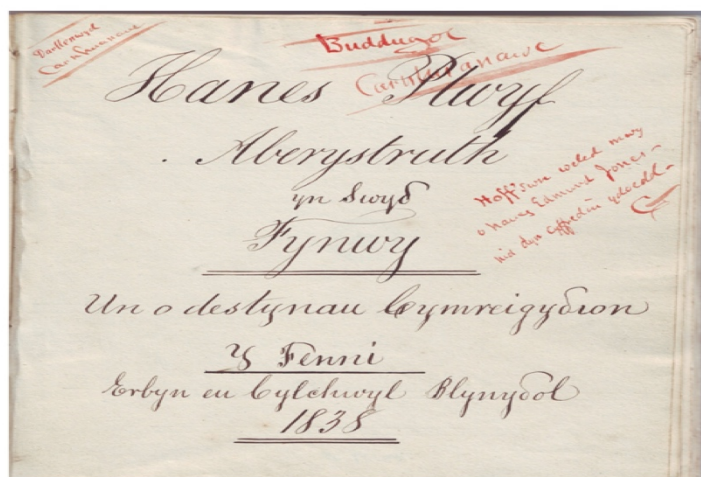 Darllenwyd
Carnhuanawc
Buddugol
Carnhuanawc
Hanes Plwyf
Aberystruth
yn Swyδ
Fynwy
Hoffswn weled mwy
o hanes Edmund Jones -
nid dyn cyffredin ydoedd -
Un o destynau Cymreigyδion
Y Fenni
Erbyn eu Cylchwyl Blynyδol
1838